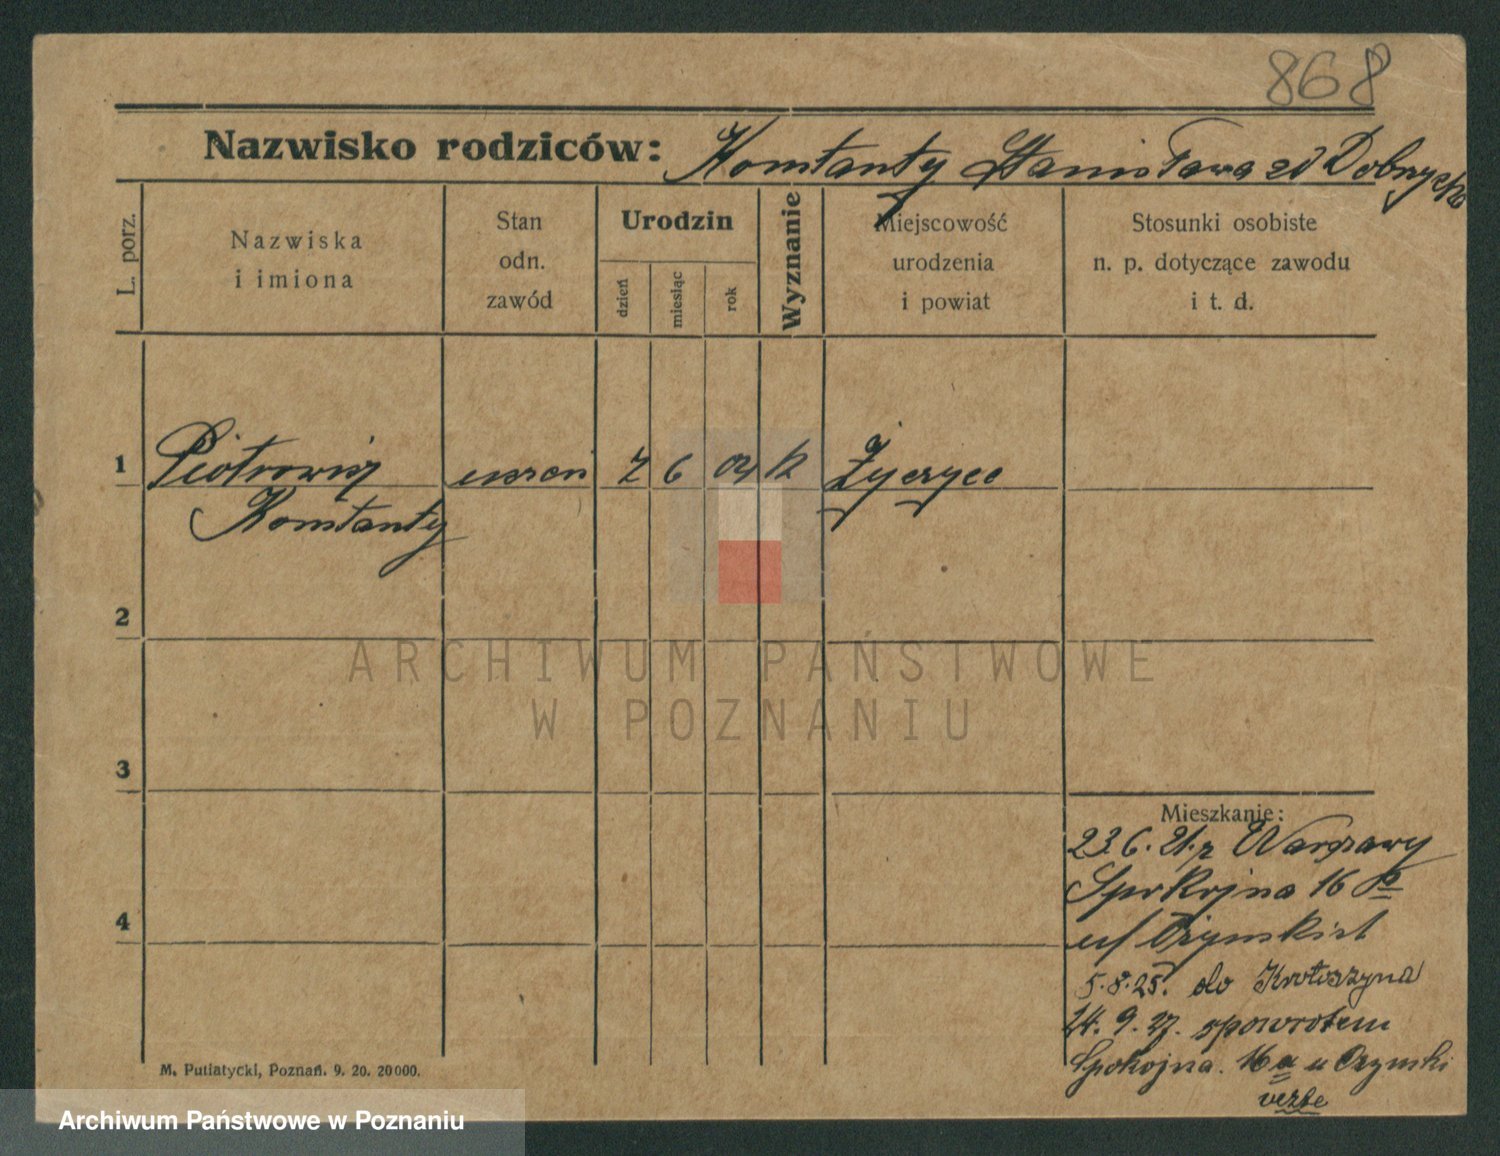 868
Nazwisko rodziców: Konstanty Stanisława zd Dobrych
L. porz.
Nazwiska
i imiona
Stan
odn.
zawód
Urodzin
dzień
miesiąc
rok
Wyznanie
Miejscowość
urodzenia
i powiat
Stosunki osobiste
n. p. dotyczące zawodu
i t. d.
1 Piotrowicz uczeń 7 6 04 k
Konstanty
2
3
4
Mieszkanie:
23.6.21. z Warszawy
Spokojna 16
5.8.25. do Krotoszyna
24.9.27. spowrotem
Spokojna. 16a u
verte
M. Putiatycki, Poznań. 9. 20. 20000.
ARCHIWUM PAŃSTWOWE
W POZNANIU
Archiwum Państwowe w Poznaniu